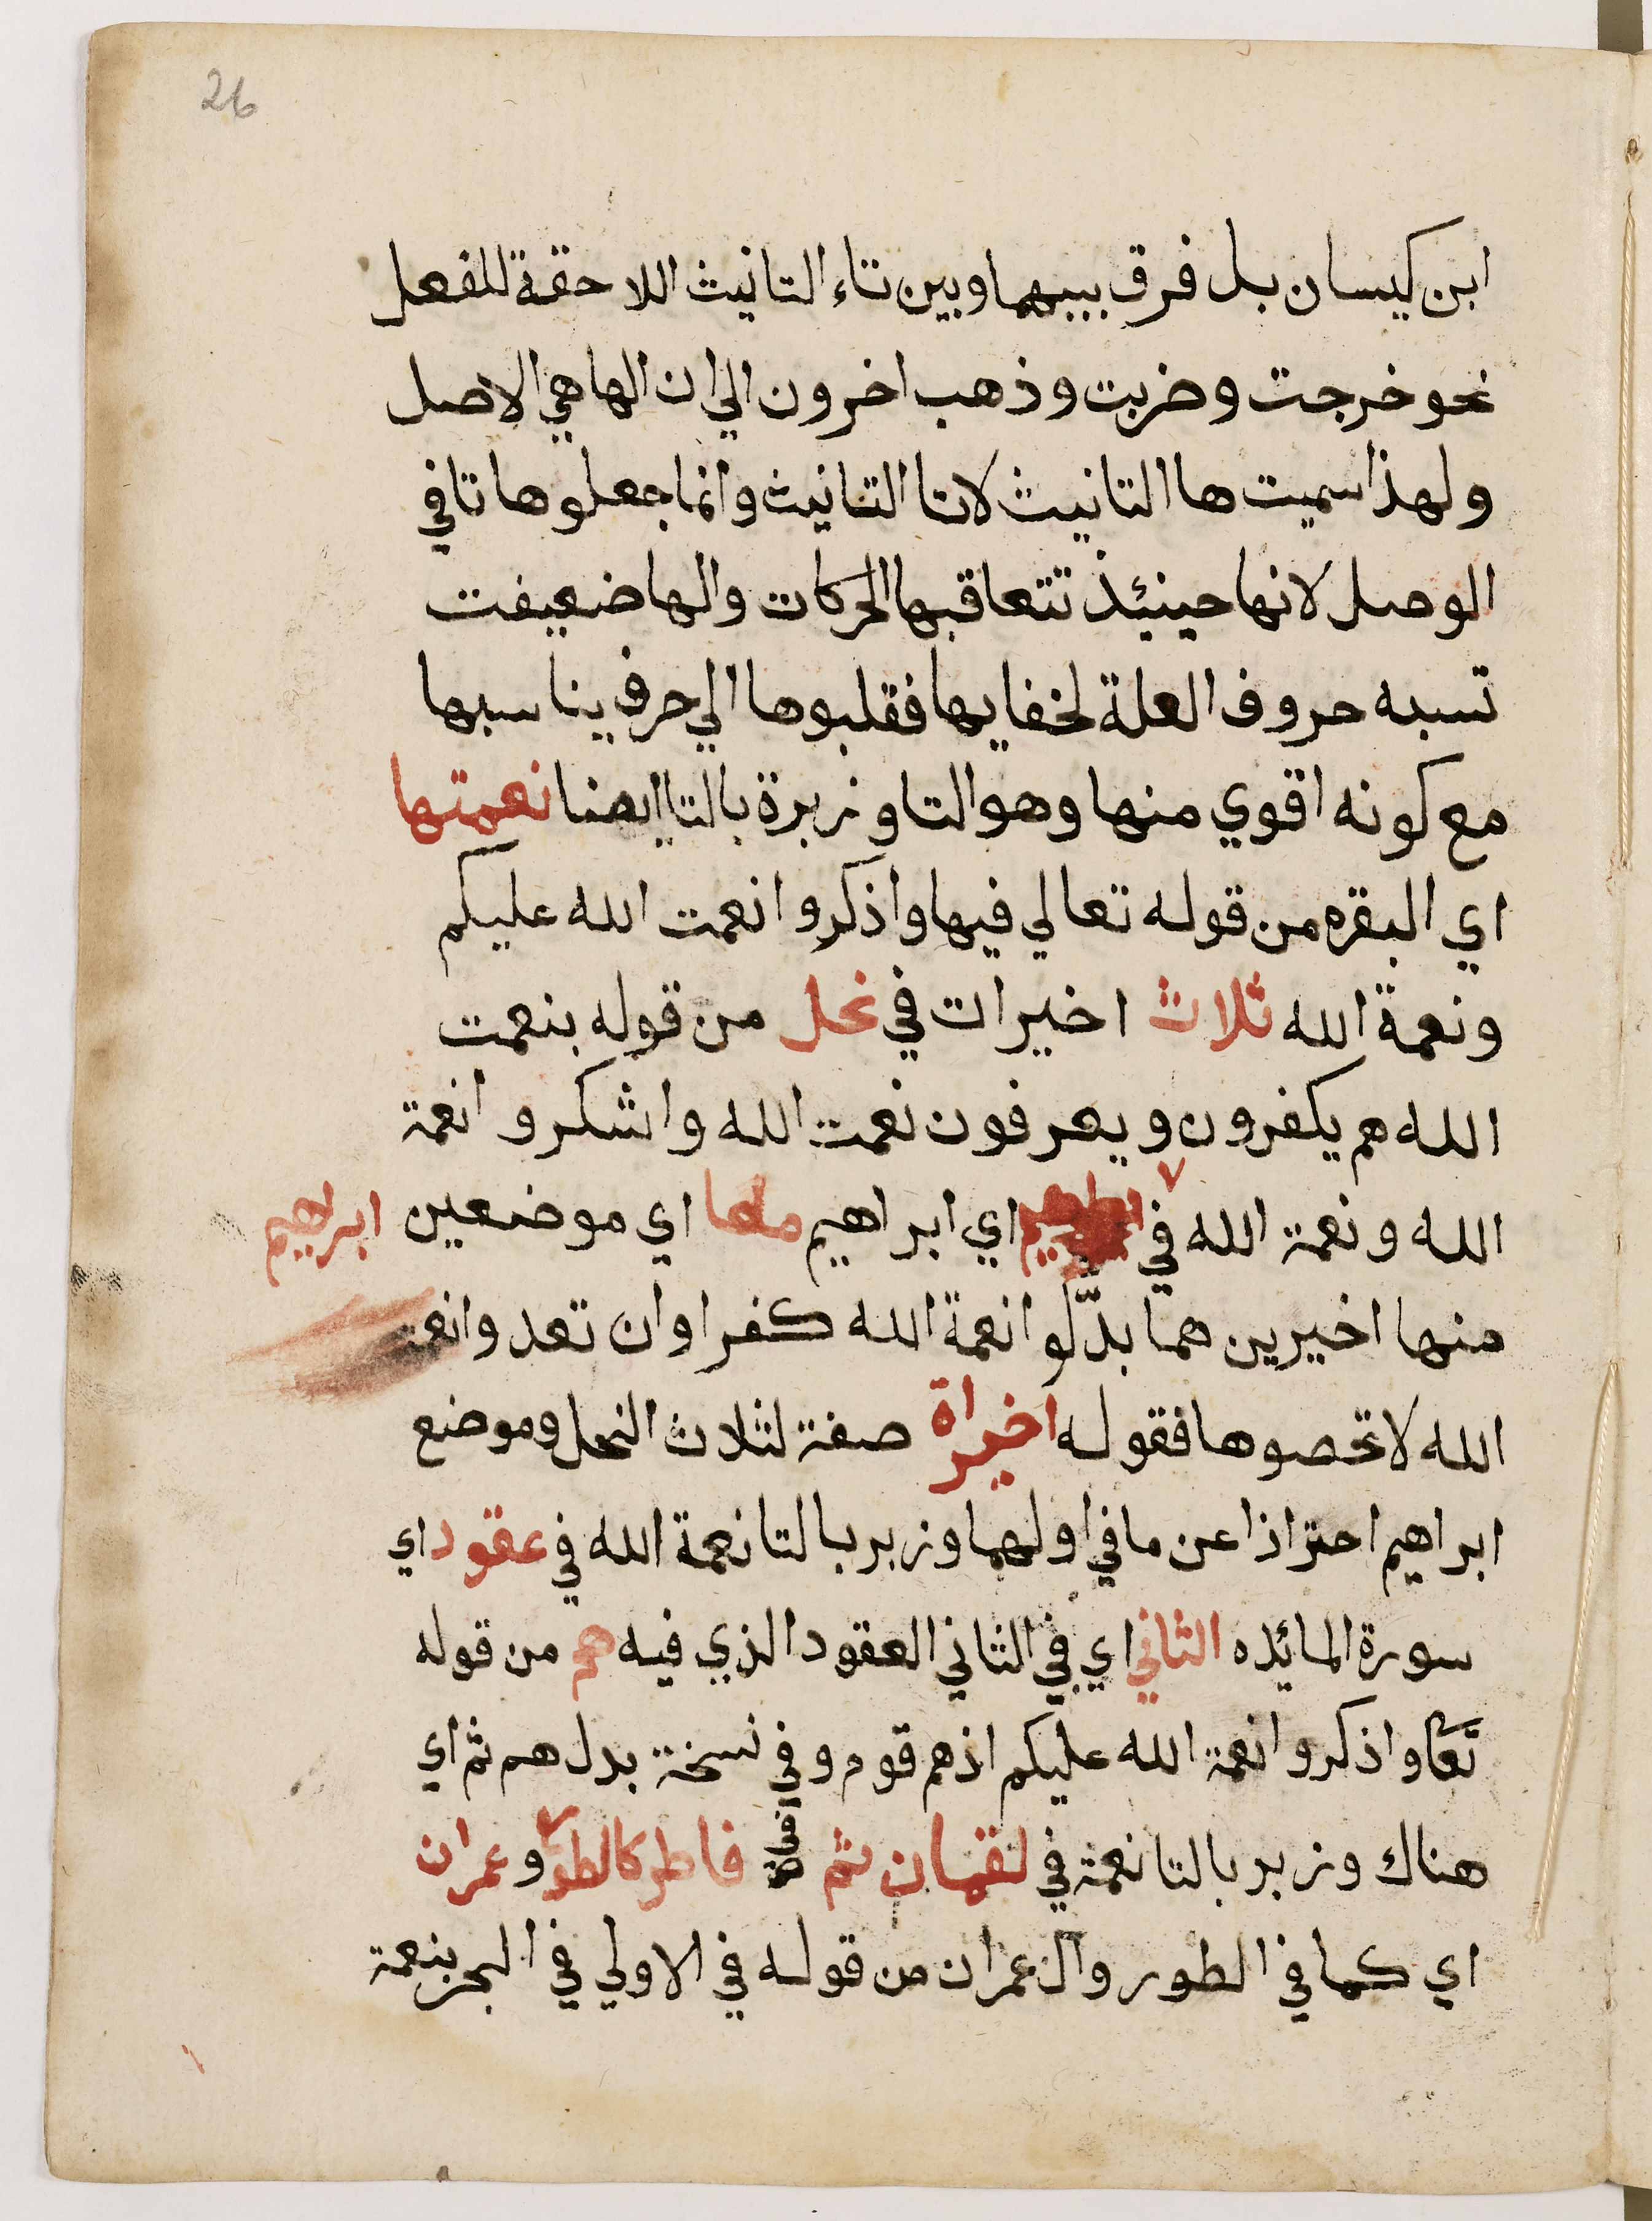 26
ابن كيسان بل فرق بينهما وبين تاء التانيث اللاحقة للفعل
نحو خرجت وضربت وذهب اخرون الي ان الها هي الاصل
ولهذا سميت ها التانيث لا تا التانيث وانما جعلوها تا في
الوصل لانها حينئذ تتعاقبها الحركات والها ضعيفت
تسبه حروف العلة لخفايها فقلبوها الي حرف يناسبها
مع كونه اقوي منها وهو التا وزبرة بالتا ايضا نعمتها
اي البقره من قوله تعالي فيها واذكروا نعمت الله عليكم
ونعمة الله ثلاث اخيرات في نحل من قوله بنعمت
الله هم يكفرون ويعرفون نعمت الله واشكروا نعمة
الله ونعمة الله في اي ابراهيم معا اي موضعين ابرهيم
منها اخيرين هما بدّلوا نعمة الله كفرا وان تعدوا نعمة
الله لا تحصوها فقوله اخيراة صفة لثلاث النحل وموضع
ابراهيم احترازا عن ما في اولهما وزبر بالتا نعمة الله في عقود اي
سورة المائده الثاني اي في الثاني العقود الذي فيه هم من قوله
تعا واذكروا نعمة الله عليكم اذ هم قوم وفي نسخة بدل هم ثم اي
هناك وزبر بالتا نعمة في لقمان ثم فاطر كالطور وعمران
اي كما في الطور وال عمران من قوله في الاولي في البحر بنعمة